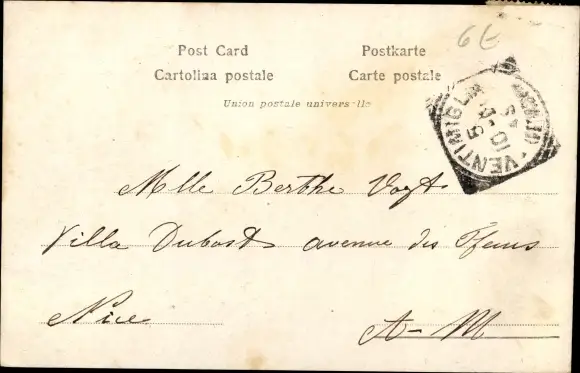 6 €
Post Card Postkarte
Cartolina postale Carte postale
Union postale universelle
VENTIMIGLIA
Mlle Berthe Vogt
Villa Dubost avenue des Fleurs
Nice
A-M